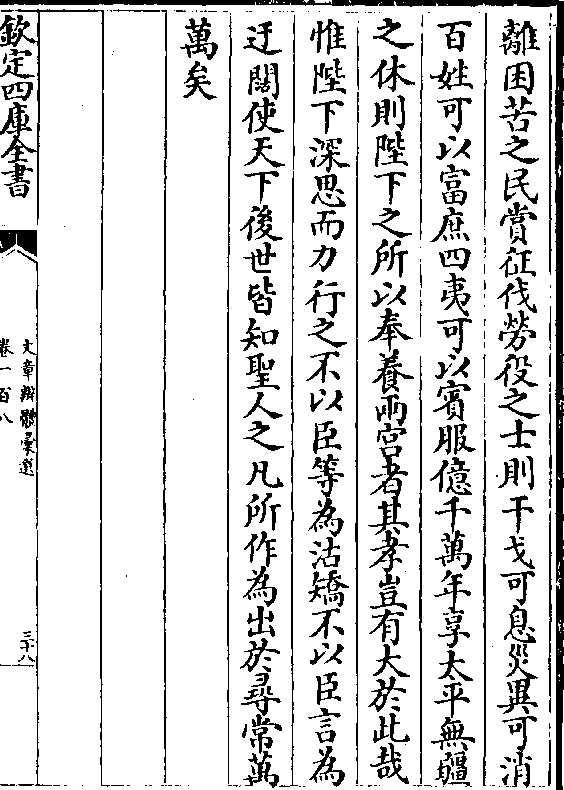 離困苦之民賞征伐勞役之士則干戈可息災異可消
百姓可以富庶四夷可以賓服億千萬年享太平無疆
之休則陛下之所以奉養兩宮者其孝豈有大於此哉
惟陛下深思而力行之不以臣等為沽矯不以臣言為
迂闊使天下後世皆知聖人之凡所作為出於尋常萬
萬矣
欽定四庫全書
文章辨體彙選
卷一百八
三十八